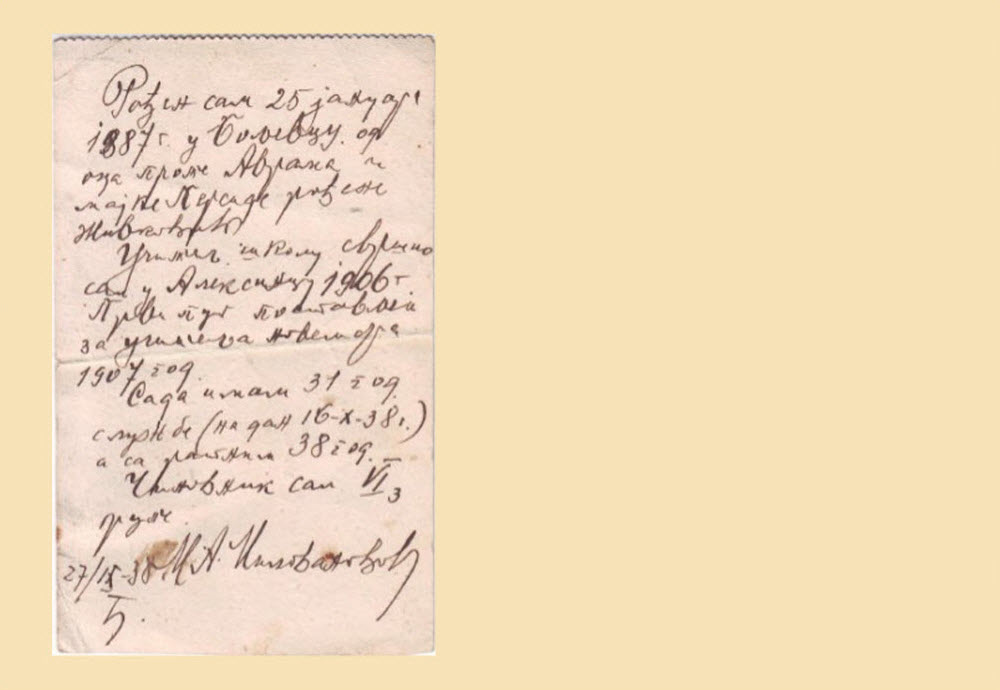 Рођен сам 25 јануара
1887 г. у Бољевцу од
оца проте Аврама и
мајке Персиде рођене
Живковић
Учитељ. школу свршио
сам у Алексинцу 1906 г
Први пут постављен
за учитеља новембра
1907 год.
Сада имам 31 год.
службе (на дан 16-X-38 г.)
а са ратним 38 год.
Чиновник сам VI 3
групе.
27/IX-38 М. А. Миловановић
Б.